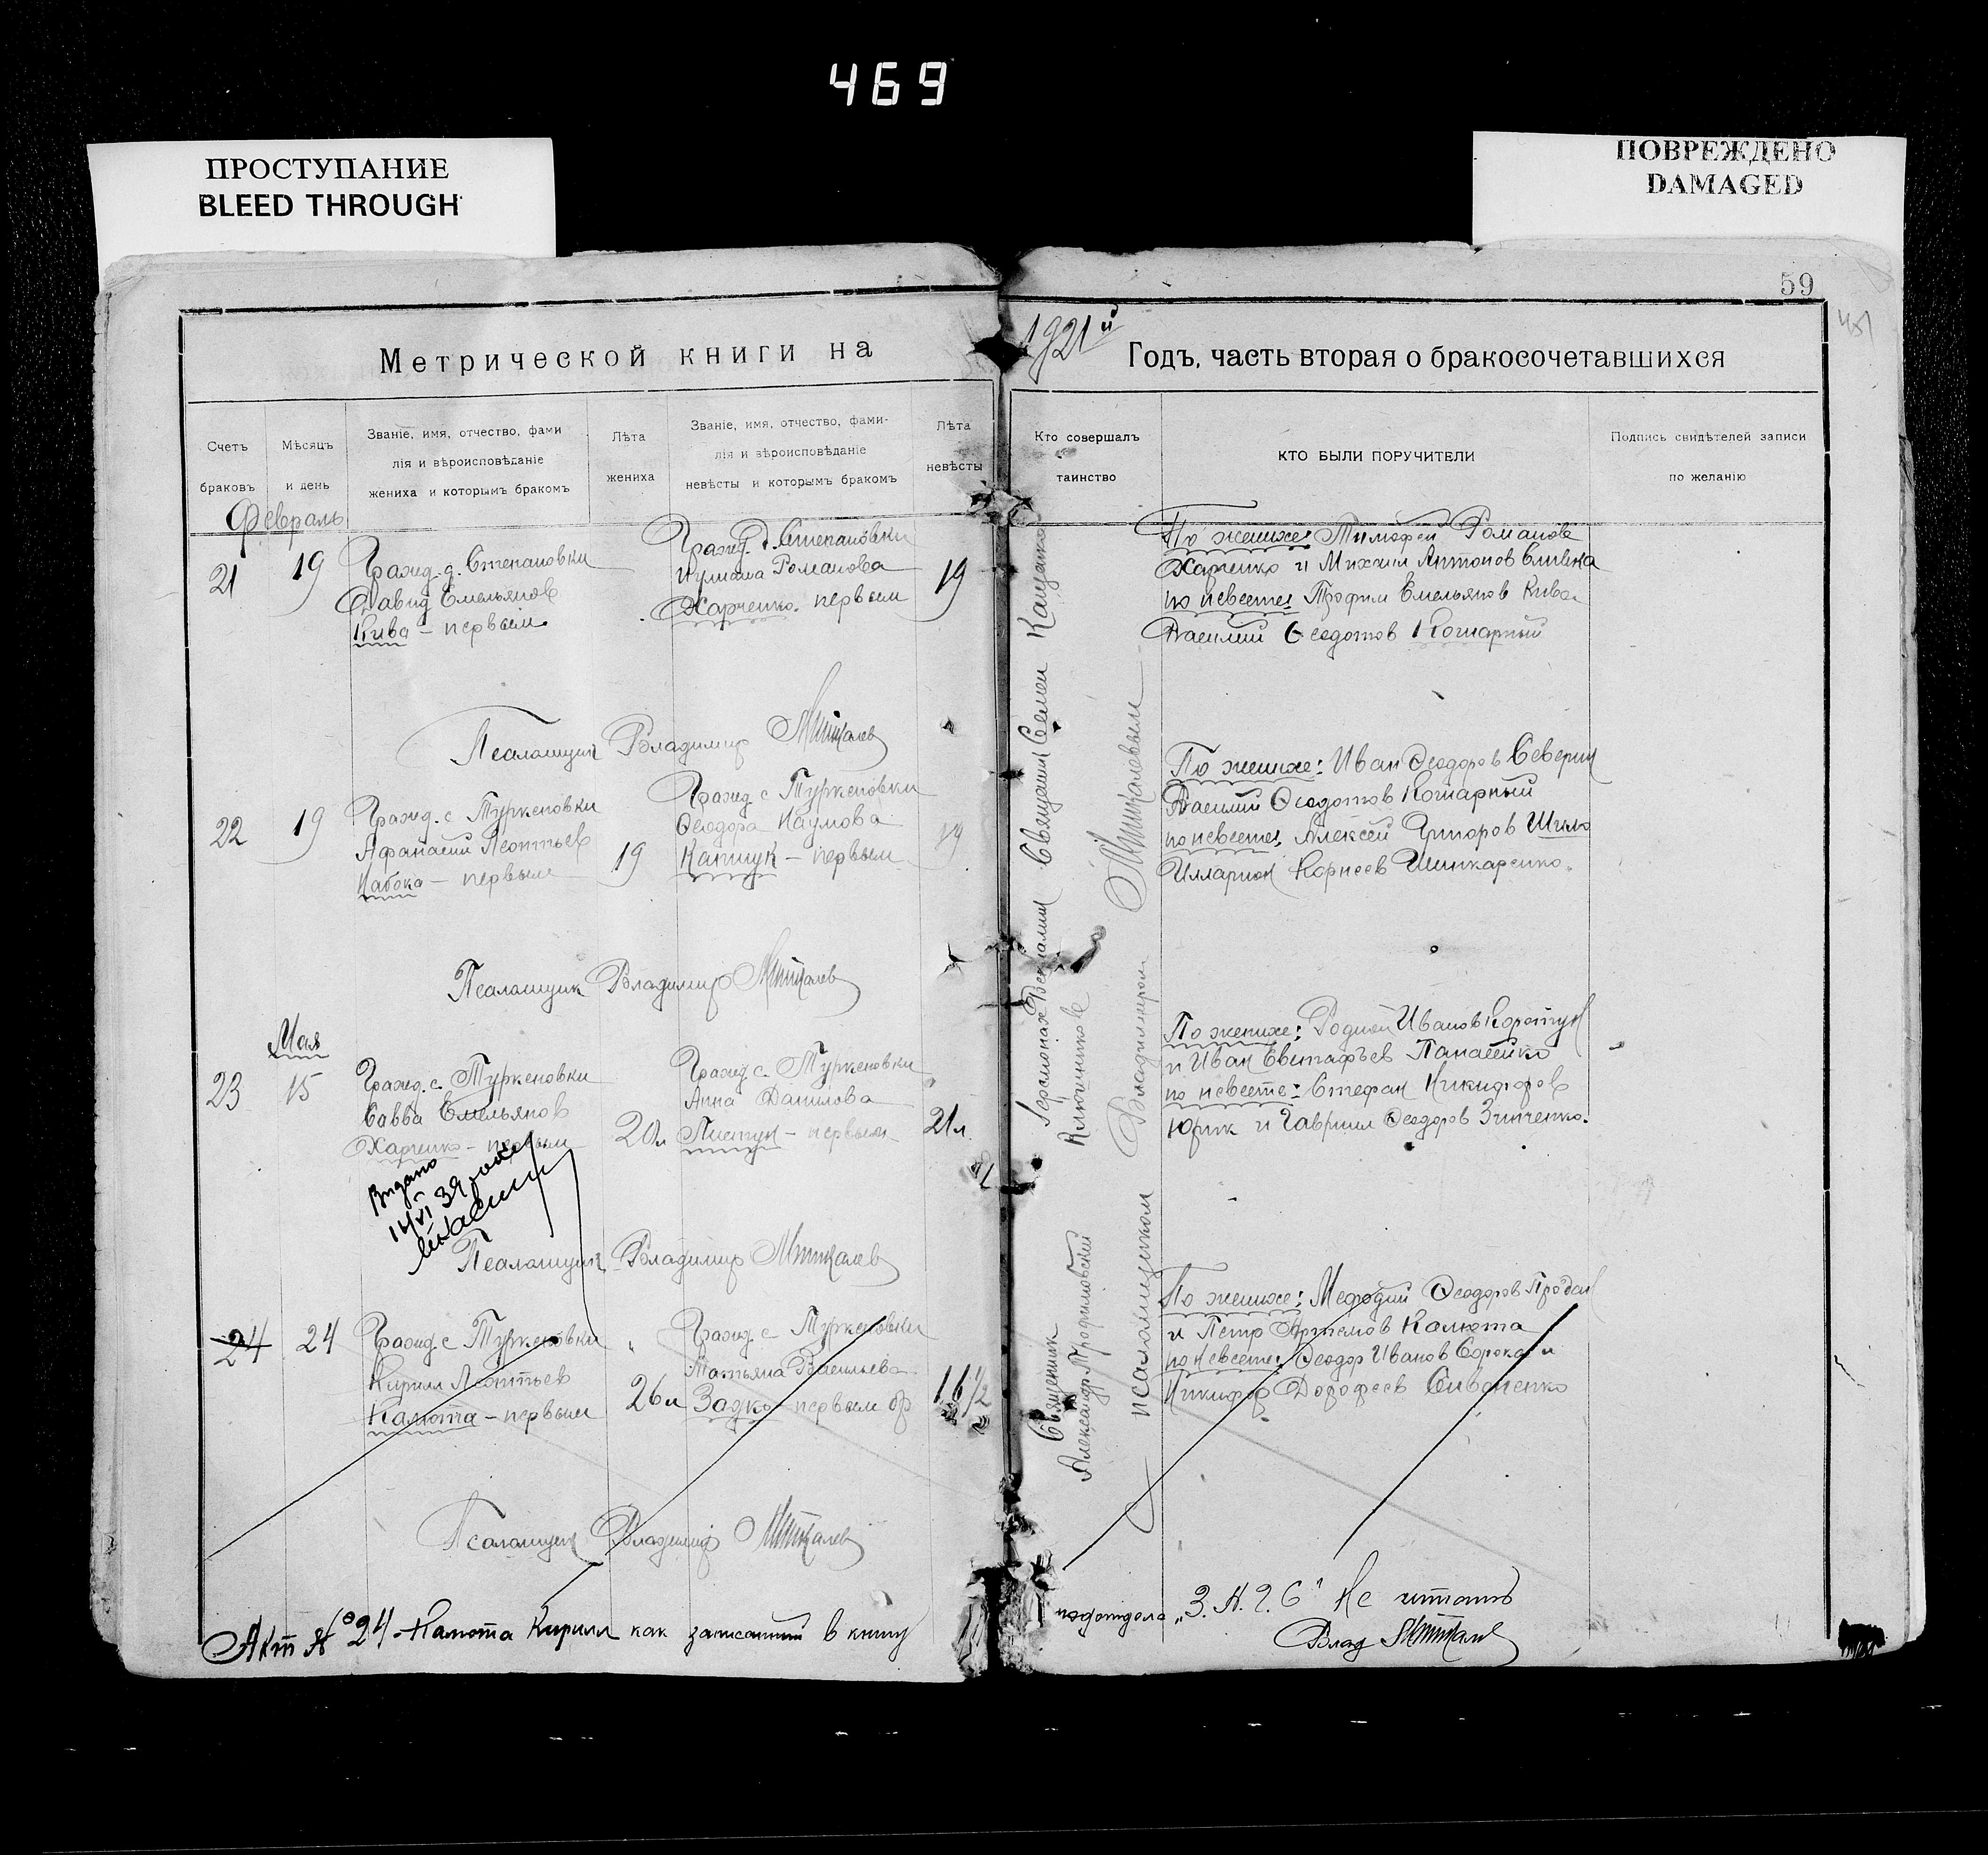 469
ПРОСТУПАНИЕ
BLEED THROUGH
ПОВРЕЖДЕНО
DAMAGED
59
Метрической книги на
1921й
Годъ, часть вторая о бракосочетавшихся
Счетъ
браковъ
Мѣсяцъ
и день
Званіе, имя, отчество, фами
лія и вѣроисповѣданіе
жениха и которымъ бракомъ
Лѣта
жениха
Званіе, имя, отчество, фами-
лія и вѣроисповѣданіе
невѣсты и которымъ бракомъ
Лѣта
невѣсты
Кто совершалъ
таинство
КТО БЫЛИ ПОРУЧИТЕЛИ
Подпись свидѣтелей записи
по желанію
Февраль
21
19
Гражд. д. Степановки
Давид Емельянов
Кива - первым
Гражд. д. Степановки
Романова
Харченко. первым
19
По женихе: Тимофей Романов
Харченко и Михаил Антонов Сливка
по невесте: Трофим Емельянов Кива
Василий Феодотов Кошарный
Псаломщик Владимир
22
19
Гражд. с Туркеновки
Афанасий Леонтьев
Набока - первым
19
Гражд. с Туркеновки
Феодора Наумова
Капшук - первым
19
По женихе: Иван Феодоров Северин
Василий Феодотов Кошарный
по невесте: Алексей Григоров Шило
Илларион Корнеев Шинкаренко.
Псаломщик Владимир
Мая
23
15
Гражд. с. Туркеновки
Савва Емельянов
Харченко - первым
20л
Гражд. с. Туркеновки
Анна Данилова
- первым
21л.
По женихе: Родион Иванов Коротун
и Иван Евстафьев Панасенко
по невесте: Стефан Никифоров
Юрик и Гавриил Феодоров Зинченко.
Видано
14/VI 39 року
Псаломщик Владимир
24
24
Гражд. с Туркеновки
Кирилл Леонтьев
Калюта - первым
26л
Гражд. с Туркеновки
Татьяна Васильева
Задко - первым бр
16 1/2
По женихе: Мефодий Феодоров Продан
и Петр Артемов Калюта
по невесте: Феодор Иванов Сорока и
Никифор Дорофеев Сивоненко
Псаломщик Владимир
Священник Семен Кащенко
Иеромонах Вениамин
Ключников
Священник
Александр Трофиловский
псаломщиком
Владимиром
Акт № 24 - Калюта Кирилл как записанный в книгу
подотдела „З. А. Г. С" Не читать
Влад